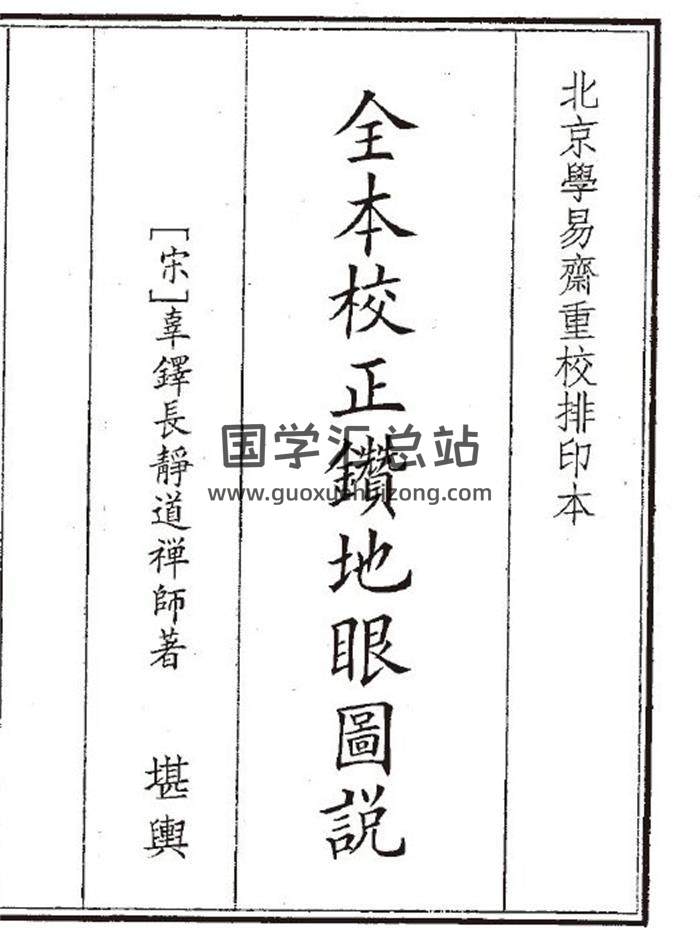 北京學易齋重校排印本
全本校正鑽地眼圖説
[宋]辜鐸長靜道禪師著 堪輿
国学汇总站
www.guoxuehuizong.com